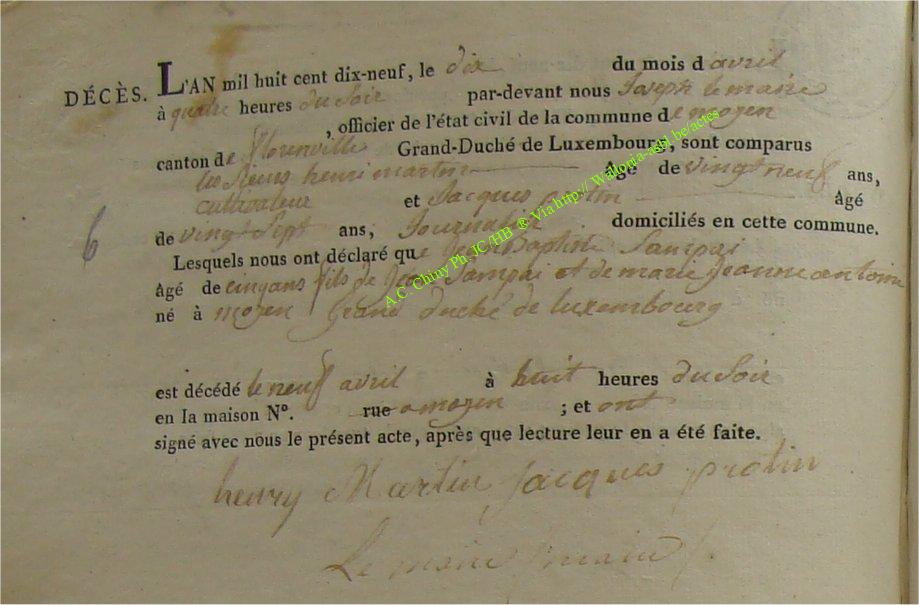 DÉCÈS. L'AN mil huit cent dix-neuf, le dix du mois d avril
à quatre heures du Soir par-devant nous Joseph le maire
, officier de l'état civil de la commune de moyen
canton de florenville Grand-Duché de Luxembourg, sont comparus
les Sieurs henri martin Agé de vingt neuf ans,
cultivateur et Jacques protin Agé
de vingt Sept ans, Journalier domiciliés en cette commune.
6
Lesquels nous ont déclaré que Jean Baptiste Sampai
Agé de cinq ans fils de Jean Sampai et de marie Jeanne antoine
né à moyen grand duché de luxembourg
est décédé le neuf avril à huit heures du Soir
en la maison N°. rue a moyen ; et ont
signé avec nous le présent acte, après que lecture leur en a été faite.
henry Martin Jacques protin
Le maire
A.C. Chiny Ph. JC/HB © Via http:// Wallonia-asbl.be/actes